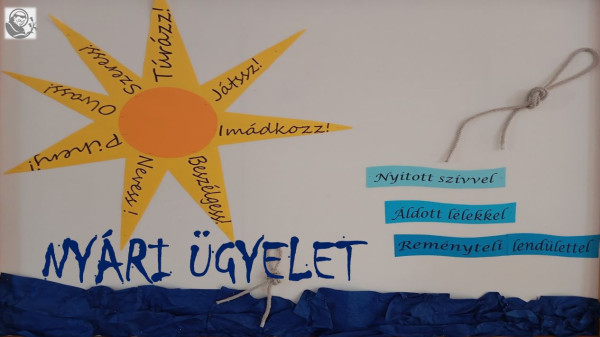 Túrázz!
Játssz!
Imádkozz!
Beszélgess!
Nevess!
Pihenj!
Olvass!
Szeress!
Nyitott szívvel
Áldott lélekkel
Reményteli lendülettel
NYÁRI ÜGYELET